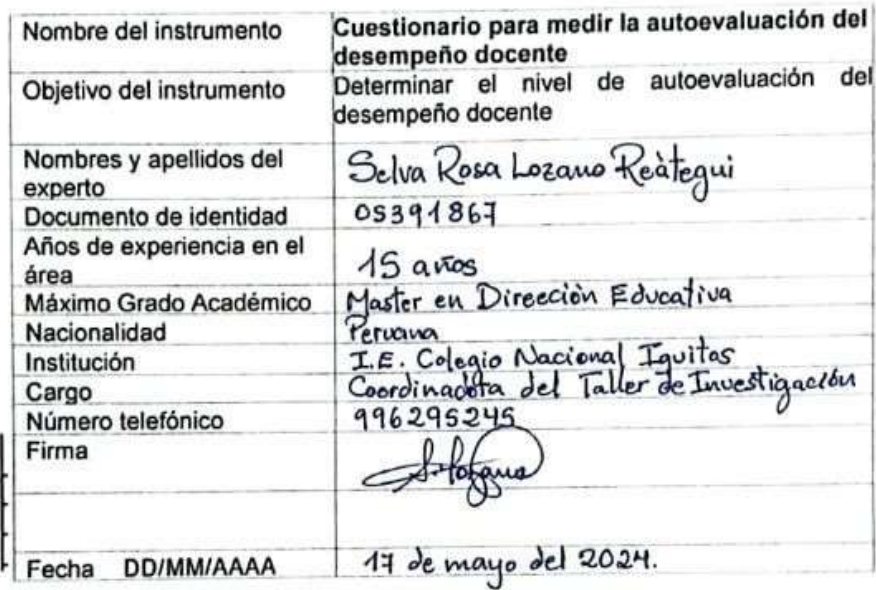 Nombre del instrumento Cuestionario para medir la autoevaluación del
desempeño docente
Objetivo del instrumento Determinar el nivel de autoevaluación del
desempeño docente
Nombres y apellidos del
experto Selva Rosa Lozano Reàtegui
Documento de identidad 05391867
Años de experiencia en el
área 15 años
Máximo Grado Académico Master en Dirección Educativa
Nacionalidad Peruana
Institución I.E. Colegio Nacional Iquitos
Cargo Coordinadora del Taller de Investigación
Número telefónico 996295245
Firma
Fecha DD/MM/AAAA 17 de mayo del 2024.